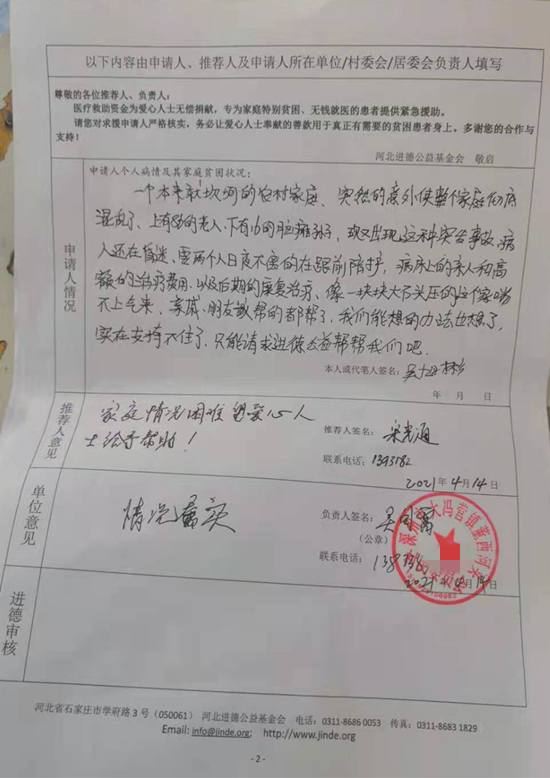 以下内容由申请人、推荐人及申请人所在单位/村委会/居委会负责人填写
尊敬的各位推荐人、负责人：
医疗救助资金为爱心人士无偿捐献，专为家庭特别贫困、无钱就医的患者提供紧急援助。
请您对求援申请人严格核实，务必让爱心人士奉献的善款用于真正有需要的贫困患者身上。多谢您的合作与
支持！
河北进德公益基金会 敬启
申请人情况
申请人个人病情及其家庭贫困状况：
一个本来就坎坷的农村家庭、突然的意外使整个家庭彻底
混乱了、上有80的老人、下有10的脑瘫孙子，现又出现这种突发事故，病
人还在昏迷，需两个人日夜不离的在跟前陪护，病床上的亲人和高
额的治疗费用，以及后期的康复治疗、像一块块大石头压的这个家喘
不上气来，亲戚、朋友教帮的都帮了，我们能想的办法也想了，
实在支持不住了，只能请求进德公益帮帮我们吧．
本人或代笔人签名：
年 月 日
推荐人意见
家庭情况困难 望爱心人
士给予帮助！
推荐人签名：宋光通
联系电话：1393182
2021年4月14日
单位意见
情况属实
负责人签名：
（公章）
联系电话：
2021年4月14日
进德审核
河北省石家庄市学府路 3 号（050061） 河北进德公益基金会 电话：0311-8686 0053 传真：0311-8683 1829
Email: info@jinde.org; http://www.jinde.org
- 2 -